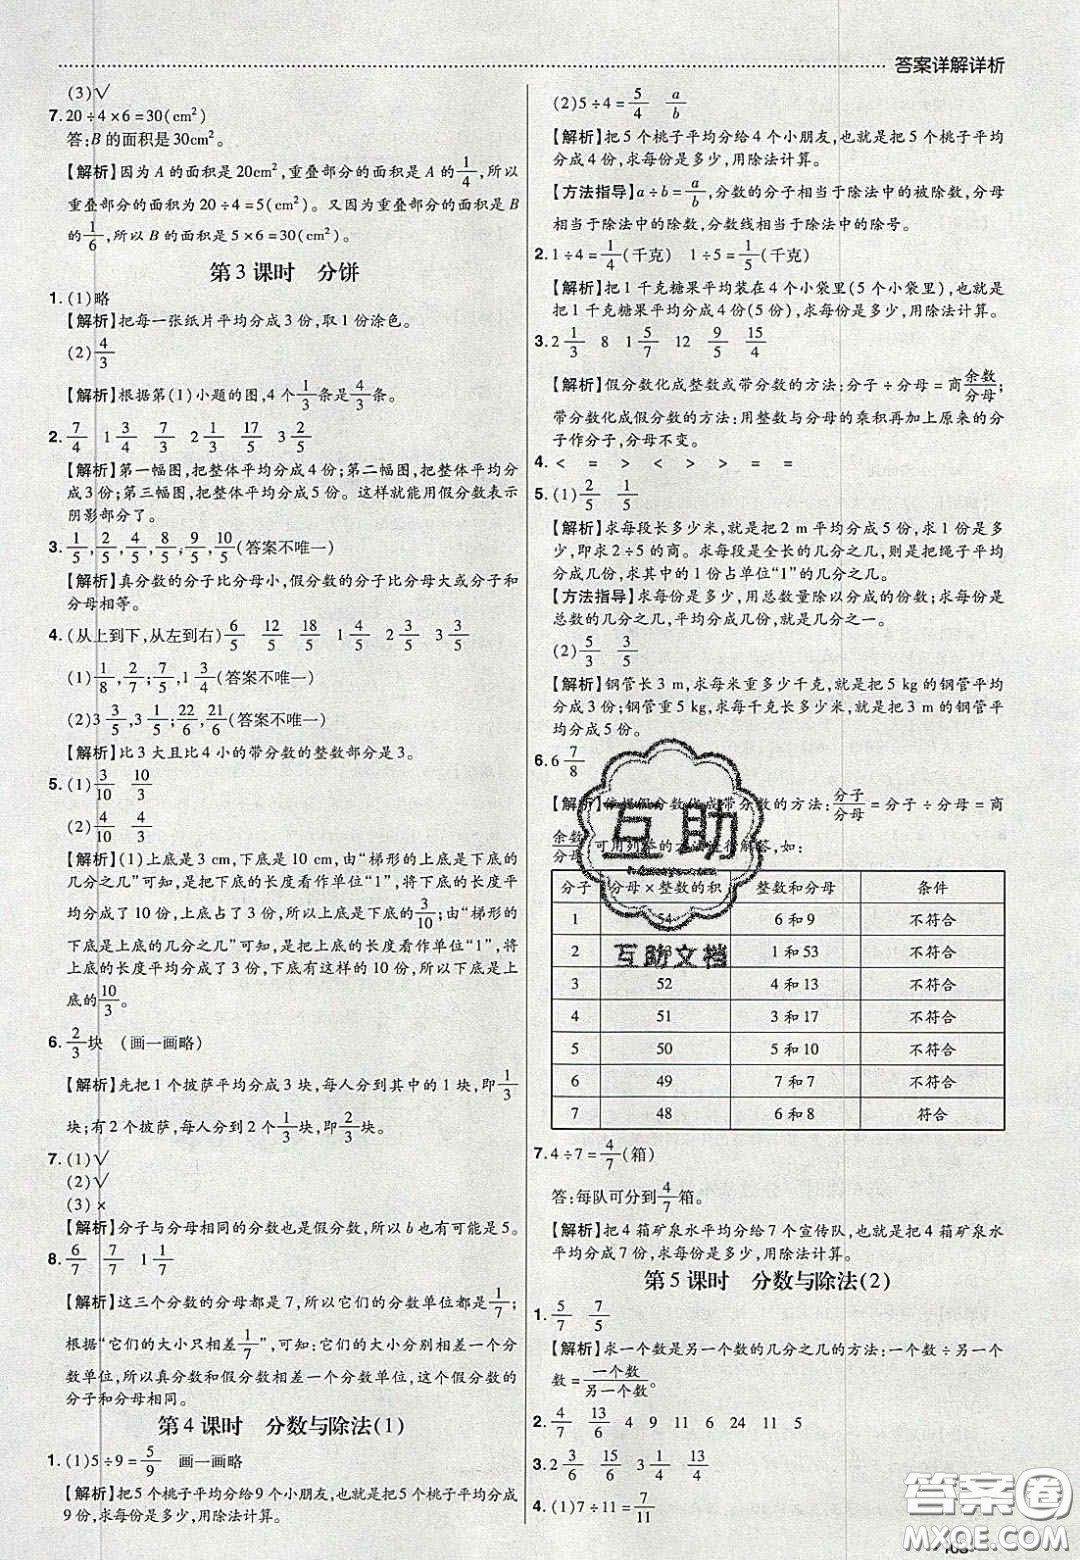 答案详解详析
(3)√
7. 20÷4×6=30(cm²)
答:B 的面积是30cm²。
【解析】因为 A 的面积是20cm²,重叠部分的面积是 A 的1/4,所以
重叠部分的面积为 20÷4=5(cm²)。又因为重叠部分的面积是 B
的1/6,所以 B 的面积是 5×6=30(cm²)。
第 3 课时 分饼
1. (1)略
【解析】把每一张纸片平均分成3份,取1份涂色。
(2)4/3
【解析】根据第(1)小题的图,4 个1/3条是4/3条。
2. 7/4 1 3/4 7/3 2 1/3 17/5 3 2/5
【解析】第一幅图,把整体平均分成4份;第二幅图,把整体平均分
成3份;第三幅图,把整体平均分成5份。这样就能用假分数表示
阴影部分了。
3. 1/5,2/5,4/5,8/5,9/5,10/5(答案不唯一)
【解析】真分数的分子比分母小,假分数的分子比分母大或分子和
分母相等。
4. (从上到下,从左到右)6/5 12/5 18/5 1 4/5 2 3/5 3 3/5
(1)1/8,2/7;7/5,1 3/4(答案不唯一)
(2)3 3/5,3 1/5;22/6,21/6(答案不唯一)
【解析】比 3 大且比 4 小的带分数的整数部分是 3。
5. (1)3/10 10/3
(2)4/10 10/4
【解析】(1)上底是 3 cm,下底是 10 cm,由“梯形的上底是下底的
几分之几”可知,是把下底的长度看作单位“1”,将下底的长度平
均分成了 10 份,上底占了 3 份,所以上底是下底的3/10;由“梯形的
下底是上底的几分之几”可知,是把上底的长度看作单位“1”,将
上底的长度平均分成了 3 份,下底有这样的 10 份,所以下底是上
底的10/3。
6. 2/3块 (画一画略)
【解析】先把 1 个披萨平均分成 3 块,每人分到其中的 1 块,即1/3
块;有 2 个披萨,每人分到 2 个1/3块,即2/3块。
7. (1)√
(2)√
(3)×
【解析】分子与分母相同的分数也是假分数,所以 b 也有可能是 5。
8. 6/7 7/7 1 1/7
【解析】这三个分数的分母都是 7,所以它们的分数单位都是1/7;
根据“它们的大小只相差1/7”,可知:它们的大小分别相差一个分
数单位,所以真分数和假分数相差一个分数单位,且假分数的分
子和分母相同。
第 4 课时 分数与除法(1)
1. (1)5÷9=5/9 画一画略
【解析】把 5 个桃子平均分给 9 个小朋友,也就是把 5 个桃子平均分成
9 份,求每份是多少,用除法计算。
(2)5÷4=5/4 a/b
【解析】把 5 个桃子平均分给 4 个小朋友,也就是把 5 个桃子平均
分成 4 份,求每份是多少,用除法计算。
【方法指导】a÷b=a/b,分数的分子相当于除法中的被除数,分母
相当于除法中的除数,分数线相当于除法中的除号。
2. 1÷4=1/4(千克) 1÷5=1/5(千克)
【解析】把 1 千克糖果平均装在 4 个小袋里(5 个小袋里),也就是
把 1 千克糖果平均分成 4 份(5 份),求每份是多少,用除法计算。
3. 2 1/3 8 1 5/7 12 9/5 15/4
【解析】假分数化成整数或带分数的方法:分子÷分母=商余数/分母;
带分数化成假分数的方法:用整数与分母的乘积再加上原来的分
子作分子,分母不变。
4. < = > < > > = =
5. (1)2/5 1/5
【解析】求每段长多少米,就是把 2 m 平均分成 5 份,求 1 份是多
少,即求 2÷5 的商。求每段是全长的几分之几,则是把绳子平均
分成 5 份,求其中的 1 份占单位“1”的几分之几。
【方法指导】求每份是多少,用总数量除以分成的份数;求每份是
总数的几分之几,平均分成几份,每份就是几分之一。
(2)5/3 3/5
【解析】钢管长 3 m,求每米重多少千克,就是把 5 kg 的钢管平均
分成 3 份;钢管重 5 kg,求每千克长多少米,就是把 3 m 的钢管平
均分成 5 份。
6. 6 7/8
【解析】依据假分数化成带分数的方法:分子/分母=分子÷分母=商
余数/分母,可用列举的方法进行解答,如:
分子 分母×整数的积 整数和分母 条件
1 54 6 和 9 不符合
2 1 和 53 不符合
3 52 4 和 13 不符合
4 51 3 和 17 不符合
5 50 5 和 10 不符合
6 49 7 和 7 不符合
7 48 6 和 8 符合
7. 4÷7=4/7(箱)
答:每队可分到4/7箱。
【解析】把 4 箱矿泉水平均分给 7 个宣传队,也就是把 4 箱矿泉水
平均分成 7 份,求每份是多少,用除法计算。
第 5 课时 分数与除法(2)
1. 5/7 7/5
【解析】求一个数是另一个数的几分之几的方法:一个数÷另一个
数=一个数/另一个数。
2. 4/7 13/6 4 9 11 6 24 11 5
3. 2 3/6 15/6 3 1/4 13/4
4. (1)7÷11=7/11
互助
互助文档
答案圈
MXQE.COM